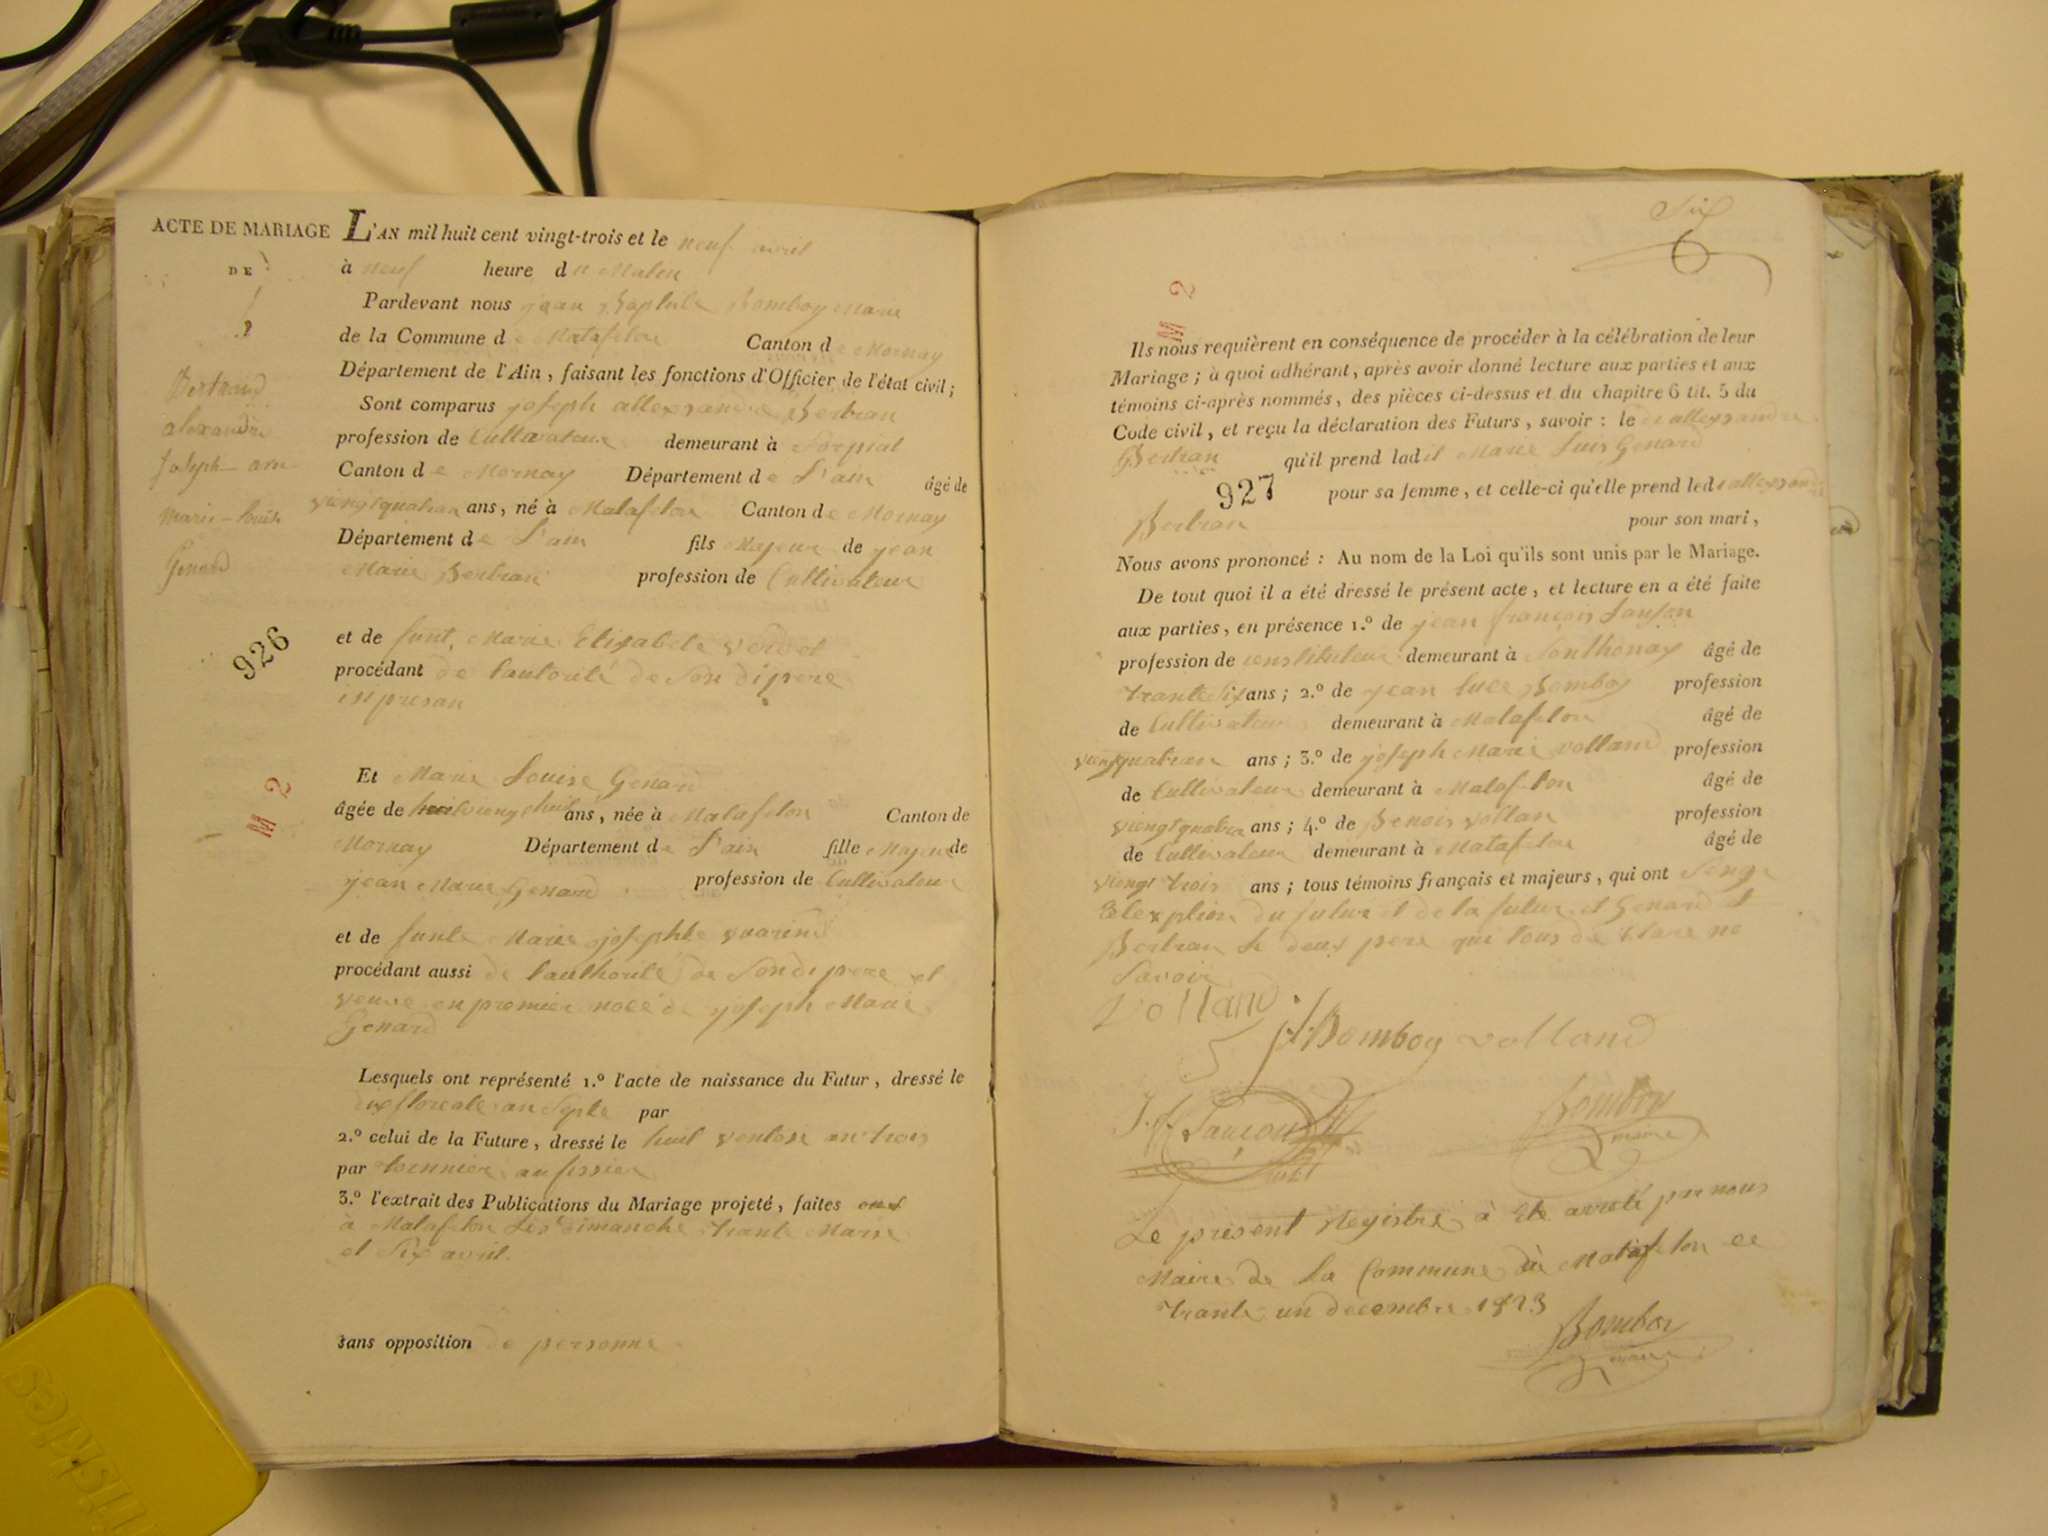 ACTE DE MARIAGE
DE
Bertrand
alexandre
Joseph - avec
marie - Louise
Genard
926
M 2
L'AN mil huit cent vingt-trois et le neuf avril
à neuf heure du Matin
Pardevant nous jean Baptiste Bomboy Maire
de la Commune de Matafelon Canton de Mornay
Département de l'Ain, faisant les fonctions d'Officier de l'état civil;
Sont comparus joseph allexsandre Bertran
profession de Cultivateur demeurant à
Canton de Mornay Département de L'ain âgé de
viengtquatran ans, né à Matafelon Canton de Mornay
Département de L'ain fils Majeur de jean
Marie Bertran profession de Cultivateur
et de funt, Marie Elisabete
procédant de lautorité de Son di pere
isy presan
Et Marie Louise Genard
âgée de viengthuit ans, née à Matafelon Canton de
Mornay Département de L'ain fille Majeur de
jean Marie Genard profession de Cultivateur
et de funte Marie josephte
procédant aussi de lauthorité de Son di pere et
veuve en premier nocé de joseph Marie
Genard
Lesquels ont représenté 1.º l'acte de naissance du Futur, dressé le
dix floreale an Septe par
2.º celui de la Future, dressé le huit ventose an trois
par
3.º l'extrait des Publications du Mariage projeté, faites
a Matafelon Les dimanche trante Marse
et Six avril.
sans opposition de personne
Six
6
M 2
Ils nous requièrent en conséquence de procéder à la célébration de leur
Mariage; à quoi adhérant, après avoir donné lecture aux parties et aux
témoins ci-après nommés, des pièces ci-dessus et du chapitre 6 tit. 5 du
Code civil, et reçu la déclaration des Futurs, savoir: le di allexsandre
Bertran qu'il prend ladit Marie Luis Genard
927 pour sa femme, et celle-ci qu'elle prend led allexsandre
Bertran pour son mari,
Nous avons prononcé: Au nom de la Loi qu'ils sont unis par le Mariage.
De tout quoi il a été dressé le présent acte, et lecture en a été faite
aux parties, en présence 1.º de jean françois Sauson
profession de demeurant à Sonthonay âgé de
trante Six ans; 2.º de jean luce Bomboy profession
de Cultivateur demeurant à Matafelon âgé de
viengtquatran ans; 3.º de joseph Marie volland profession
de Cultivateur demeurant à Matafelon âgé de
viengtquatra ans; 4.º de Benois vollan profession
de Cultivateur demeurant à Matafelon âgé de
viengt trois ans; tous témoins français et majeurs, qui ont
du futur et de la futur et Genard et
Bertran le deux pere qui tous de Clare ne
Savoir
Volland
Bomboy volland
J. f. Sauson
Bomboy
maire
Le présent Registre à Eté arreté par nous
Maire de la Commune de Matafelon ce
trante un decembre 1823
Bomboy
maire